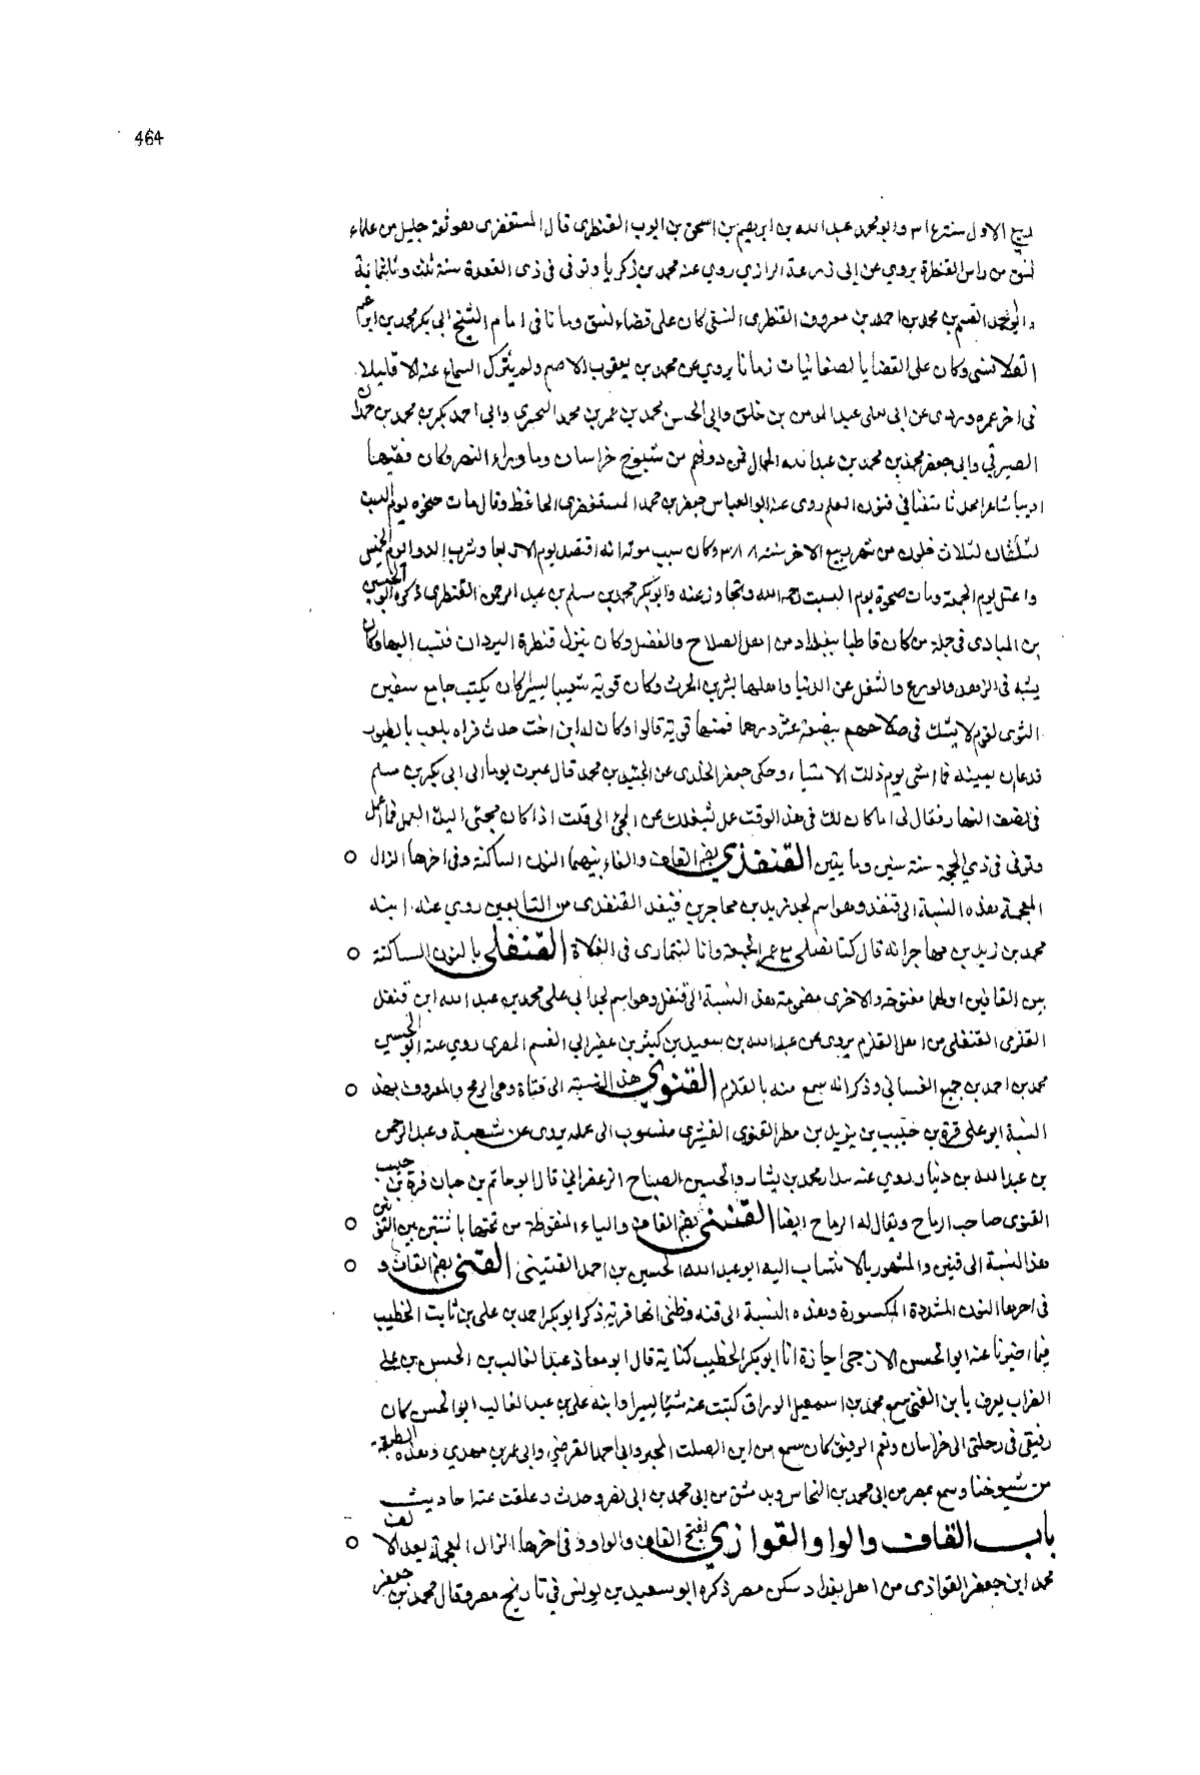 464
ربيع الاول سنة ٣١٤ وابو محمد عبد الله بن ابرهيم بن اسحق بن ايوب القنطرى قال المستغفرى هو ثقة جليل من علماء
نسف من راس القنطرة يروي عن ابى زرعة الرازي روي عنه محمد بن زكريا وتوفى فى ذى القعدة سنة ثلث وثلثماية
وابو محمد القسم بن محمد بن احمد بن معروف القنطرى النسفى كان على قضاء نسف وماتا فى امام الشيخ ابى بكر محمد بن ابراهيم
القلانسى وكان على القضايا لصغانيات زمانا يروي عن محمد بن يعقوب الاصم ولم يترك السماع عنه الا قليلا
فى اخر عمره وروى عن ابى يعلى عبد المومن بن خلف وابى الحسن محمد بن عمر بن محمد البحيري وابى احمد بكر بن محمد بن حمدان
الصيرفي وابى جعفر محمد بن محمد بن عبد الله الجمال فمن دونهم من شيوخ خراسان وما وراء النهر وكان فقيها
اديبا شاعرا محدثا متفننا في فنون العلم روى عنه ابو العباس جعفر بن محمد المستغفري الحافظ وقال مات ضحوة يوم السبت
لثلاث خلون من شهر ربيع الاخر سنة ٣٨٨ وكان سبب موته انه افتصد يوم الاربعا وشرب الدوا يوم الخميس
واعتل يوم الجمعة ومات ضحوة يوم السبت رحمه الله وتجاوز عنه وابو بكر محمد بن مسلم بن عبد الرحمن القنطرى ذكره ابو الحسين
بن المنادى فى جملة من كان قاطنا ببغداد من اهل الصلاح والفضل وكان ينزل قنطرة البردان فنسب اليها وكان
يشبه فى الزهد والورع والشغل عن الدنيا واهلها ببشر بن الحرث وكان قوته شيبا يسيرا كان يكتب جامع سفين
الثورى لقوم لا يشك فى صلاحهم ببضعة عشر درهما فمنها قوته قالوا وكان له ابن اخت حدث فراه يلعب بالطيور
فدعا الله يميته فما امسى يوم ذلك الا ميتا ٥ وحكى جعفر الخلدى عن الجنيد بن محمد قال عبرت يوما الى ابى بكر بن مسلم
فى نصف النهار فقال لى اما كان لك فى هذا الوقت عمل شغلك عن المجى الى قلت اذا كان مجيئى اليك العمل فما اعمل
وتوفى فى ذي الحجة سنة ستين ومايتين القنفذي بضم القاف والفاء بينهما النون الساكنة وفى اخرها الذال ٥
المعجمة هذه النسبة الى قنفذ وهو اسم لجد زيد بن مهاجر بن قنفذ القنفذى من التابعين روي عنه ابنه
محمد بن زيد بن مهاجر انه قال كنا نصلى مع عمر الجمعة وانا لنتمارى فى الفلاة القنقلى بالنون الساكنة ٥
بين القافين اولها مفتوحة والاخرى مضمومة هذه النسبة الى قنقل وهو اسم لجد ابى على محمد بن عبد الله ابن قنقل
القلزمى القنقلى من اهل القلزم يروى عن عبد الله بن سعيد بن كثير بن عفير ابى القسم المصرى روي عنه ابو الحسين
محمد بن احمد بن جميع الغساني وذكر انه سمع منه بالقلزم القنوي هذه النسبة الى قناة وهي الرمح والمعروف بهذه ٥
النسبة ابو على قرة بن حبيب بن يزيد بن مطر القنوى القشيرى منسوب الى عمله يروى عن شعبة وعبد الرحمن
بن عبد الله بن دينار روي عنه بندار محمد بن بشار والحسين الصباح الزعفراني قال ابو حاتم بن حبان قرة بن حبيب
القنوى صاحب الرماح ويقال له الرماح ايضا القنينى بضم القاف والياء المنقوطة من تحتها باثنتين بين النونين ٥
هذه النسبة الى قنين والمشهور بالانتساب اليه ابو عبد الله الحسين بن احمد القنينى القنى بضم القاف و ٥
فى اخرها النون المشددة المكسورة وهذه النسبة الى قنه وظنى انها قرية ذكر ابو بكر احمد بن على بن ثابت الخطيب
فيما اخبرنا عنه ابو الحسن الازجى اجازة انا ابو بكر الخطيب كتابة قال ابو معاذ عبد الغالب بن الحسن بن على
القراب يعرف بابن القنى سمع محمد بن اسمعيل الوراق كتبت عنه شيا يسيرا وابنه على بن عبد الغالب ابو الحسن كان
رفيقى فى رحلتى الى خراسان ونعم الرفيق كان سمع من ابن الصلت المجبر وابى احمد الفرضي وابى عمر بن مهدي وهذه الطبقة
من شيوخنا وسمع بمصر من ابى محمد بن النحاس وبدمشق من ابى محمد بن ابى نصر وحدث وعلقت عنه احاديث
باب القاف والواو القوازي بفتح القاف والواو وفى اخرها الزال المعجمة بعد الالف ٥
محمد ابن جعفر القوازى من اهل بغداد سكن مصر ذكره ابو سعيد بن يونس في تاريخ مصر وقال محمد بن جعفر